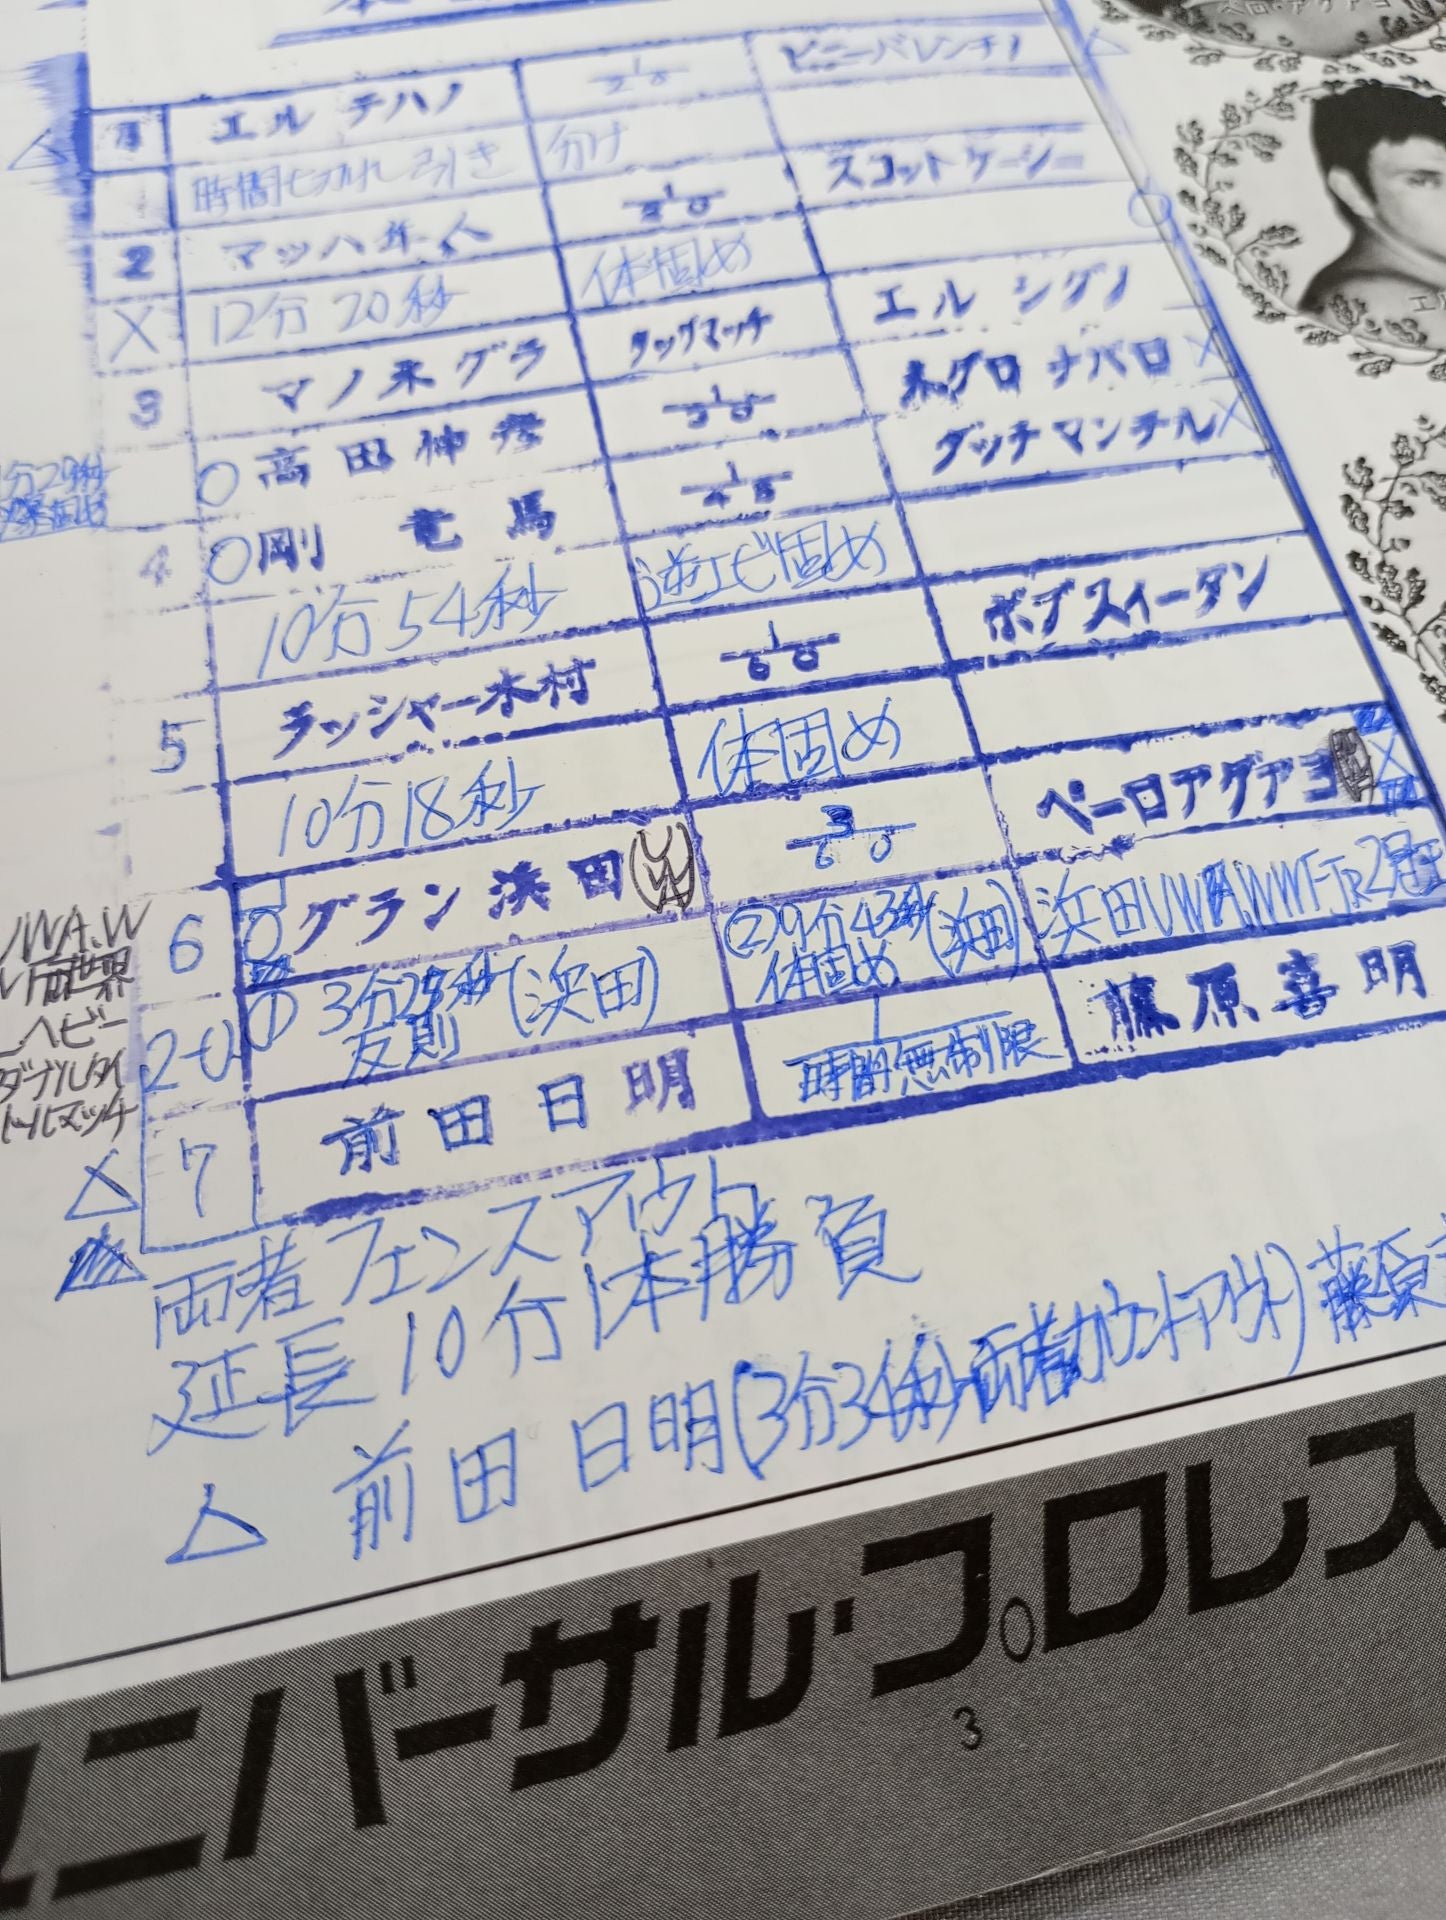 1 エル テハノ 1/20 ビニーバレンチノ
時間切れ引き 分け
2 マッハ隼人 1/20 スコットケーシー
X 12分20秒 体固め
3 マノネグラ タッグマッチ エル シグノ
1/30
○高田伸彦 ネグロ ナバロ X
4 ○剛 竜馬 1/45 ダッチマンテル X
10分54秒 逆エビ固め
5 ラッシャー木村 1/60 ボブスィータン
10分18秒 体固め
6 ○グラン浜田 3/60 ペーロアグアヨ X
2-0 ① 3分 秒(浜田) ②9分43秒(浜田) 浜田UWA.WWFJr2冠王
反則 体固め
7 前田日明 1/時間無制限 藤原喜明
分29秒
UWA.W
両世界
ヘビー
ダブルタイ
トルマッチ
両者フェンスアウト
延長10分1本勝負
△ 前田日明(3分3 秒両者カウントアウト)藤原
ユニバーサル・プロレス
3